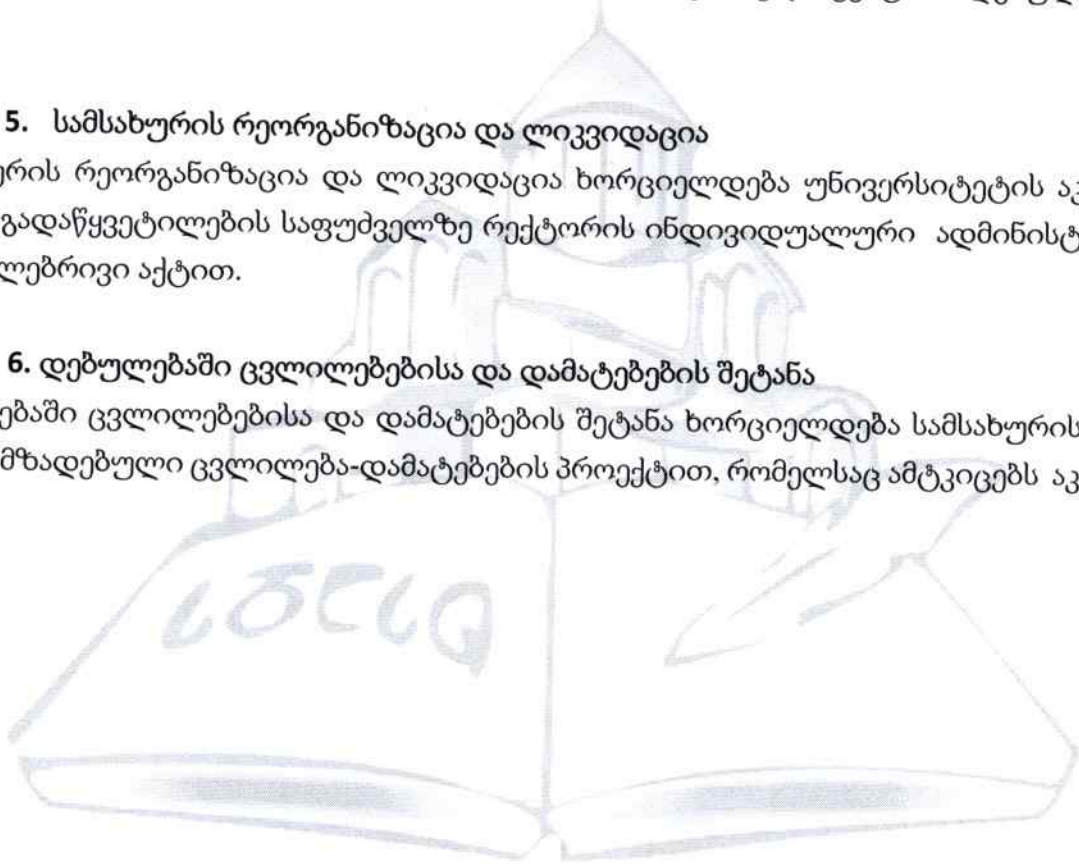 5. სამსახურის რეორგანიზაცია და ლიკვიდაცია
ურის რეორგანიზაცია და ლიკვიდაცია ხორციელდება უნივერსიტეტის აკ
გადაწყვეტილების საფუძველზე რექტორის ინდივიდუალური ადმინისტ
ლებრივი აქტით.
6. დებულებაში ცვლილებებისა და დამატებების შეტანა
ებაში ცვლილებებისა და დამატებების შეტანა ხორციელდება სამსახურის
მზადებული ცვლილება-დამატებების პროექტით, რომელსაც ამტკიცებს აკ